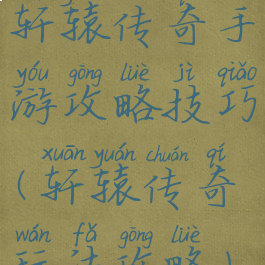 轩辕传奇手
yóu gōng lüè jì qiǎo
游攻略技巧
xuān yuán chuán qí
(轩辕传奇
wán fǎ gōng lüè
玩法攻略)